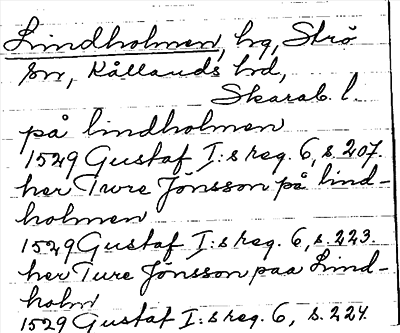 Lindholmen, hg, Strö
sn, Kållands hd,
Skarab. l.
på lindholmen
1529 Gustaf I:s reg. 6, s. 207.
her Twre Jönsson på lind-
holmen
1529 Gustaf I:s reg. 6, s. 223.
her Ture Jönsson paa Lind-
holm
1529 Gustaf I:s reg. 6, s. 224.